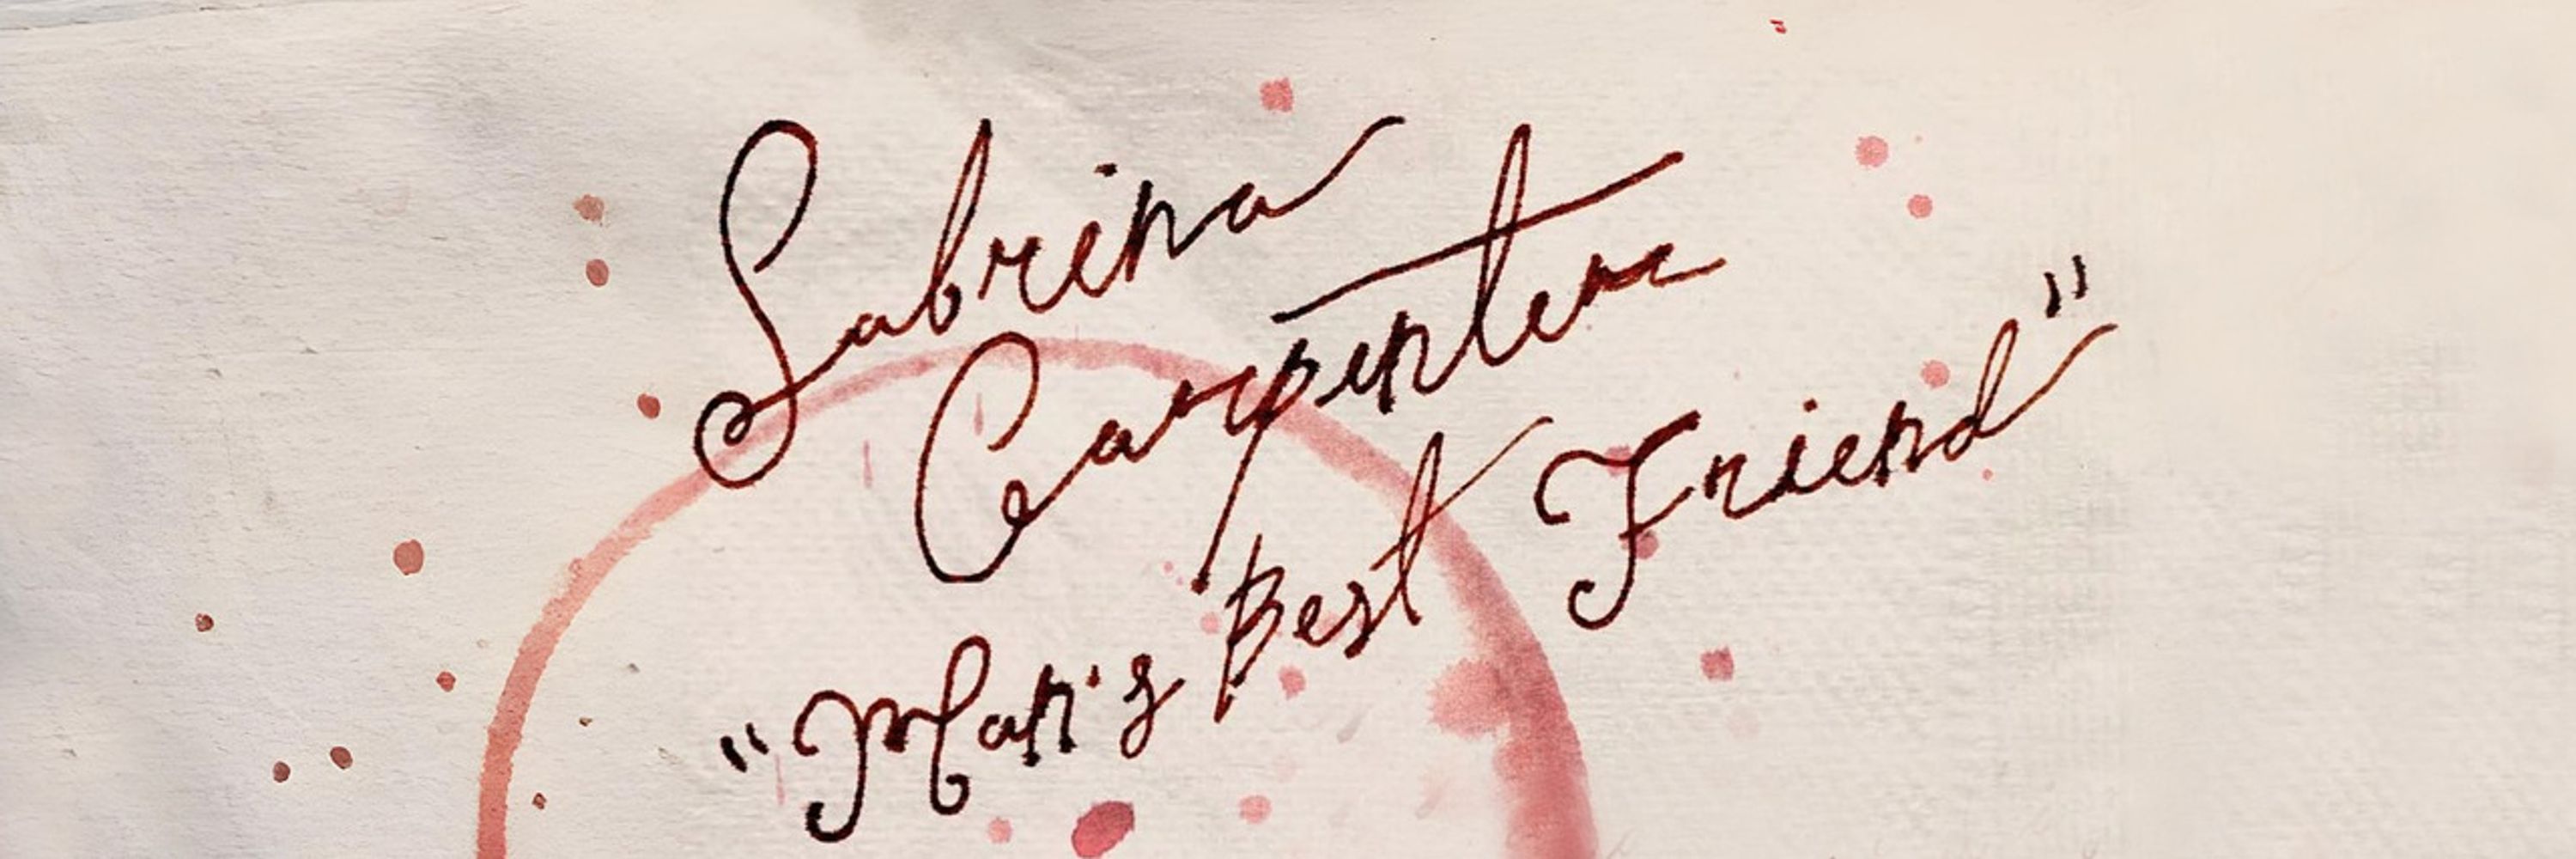 Sabrina
Carpenter
"Man's Best Friend"